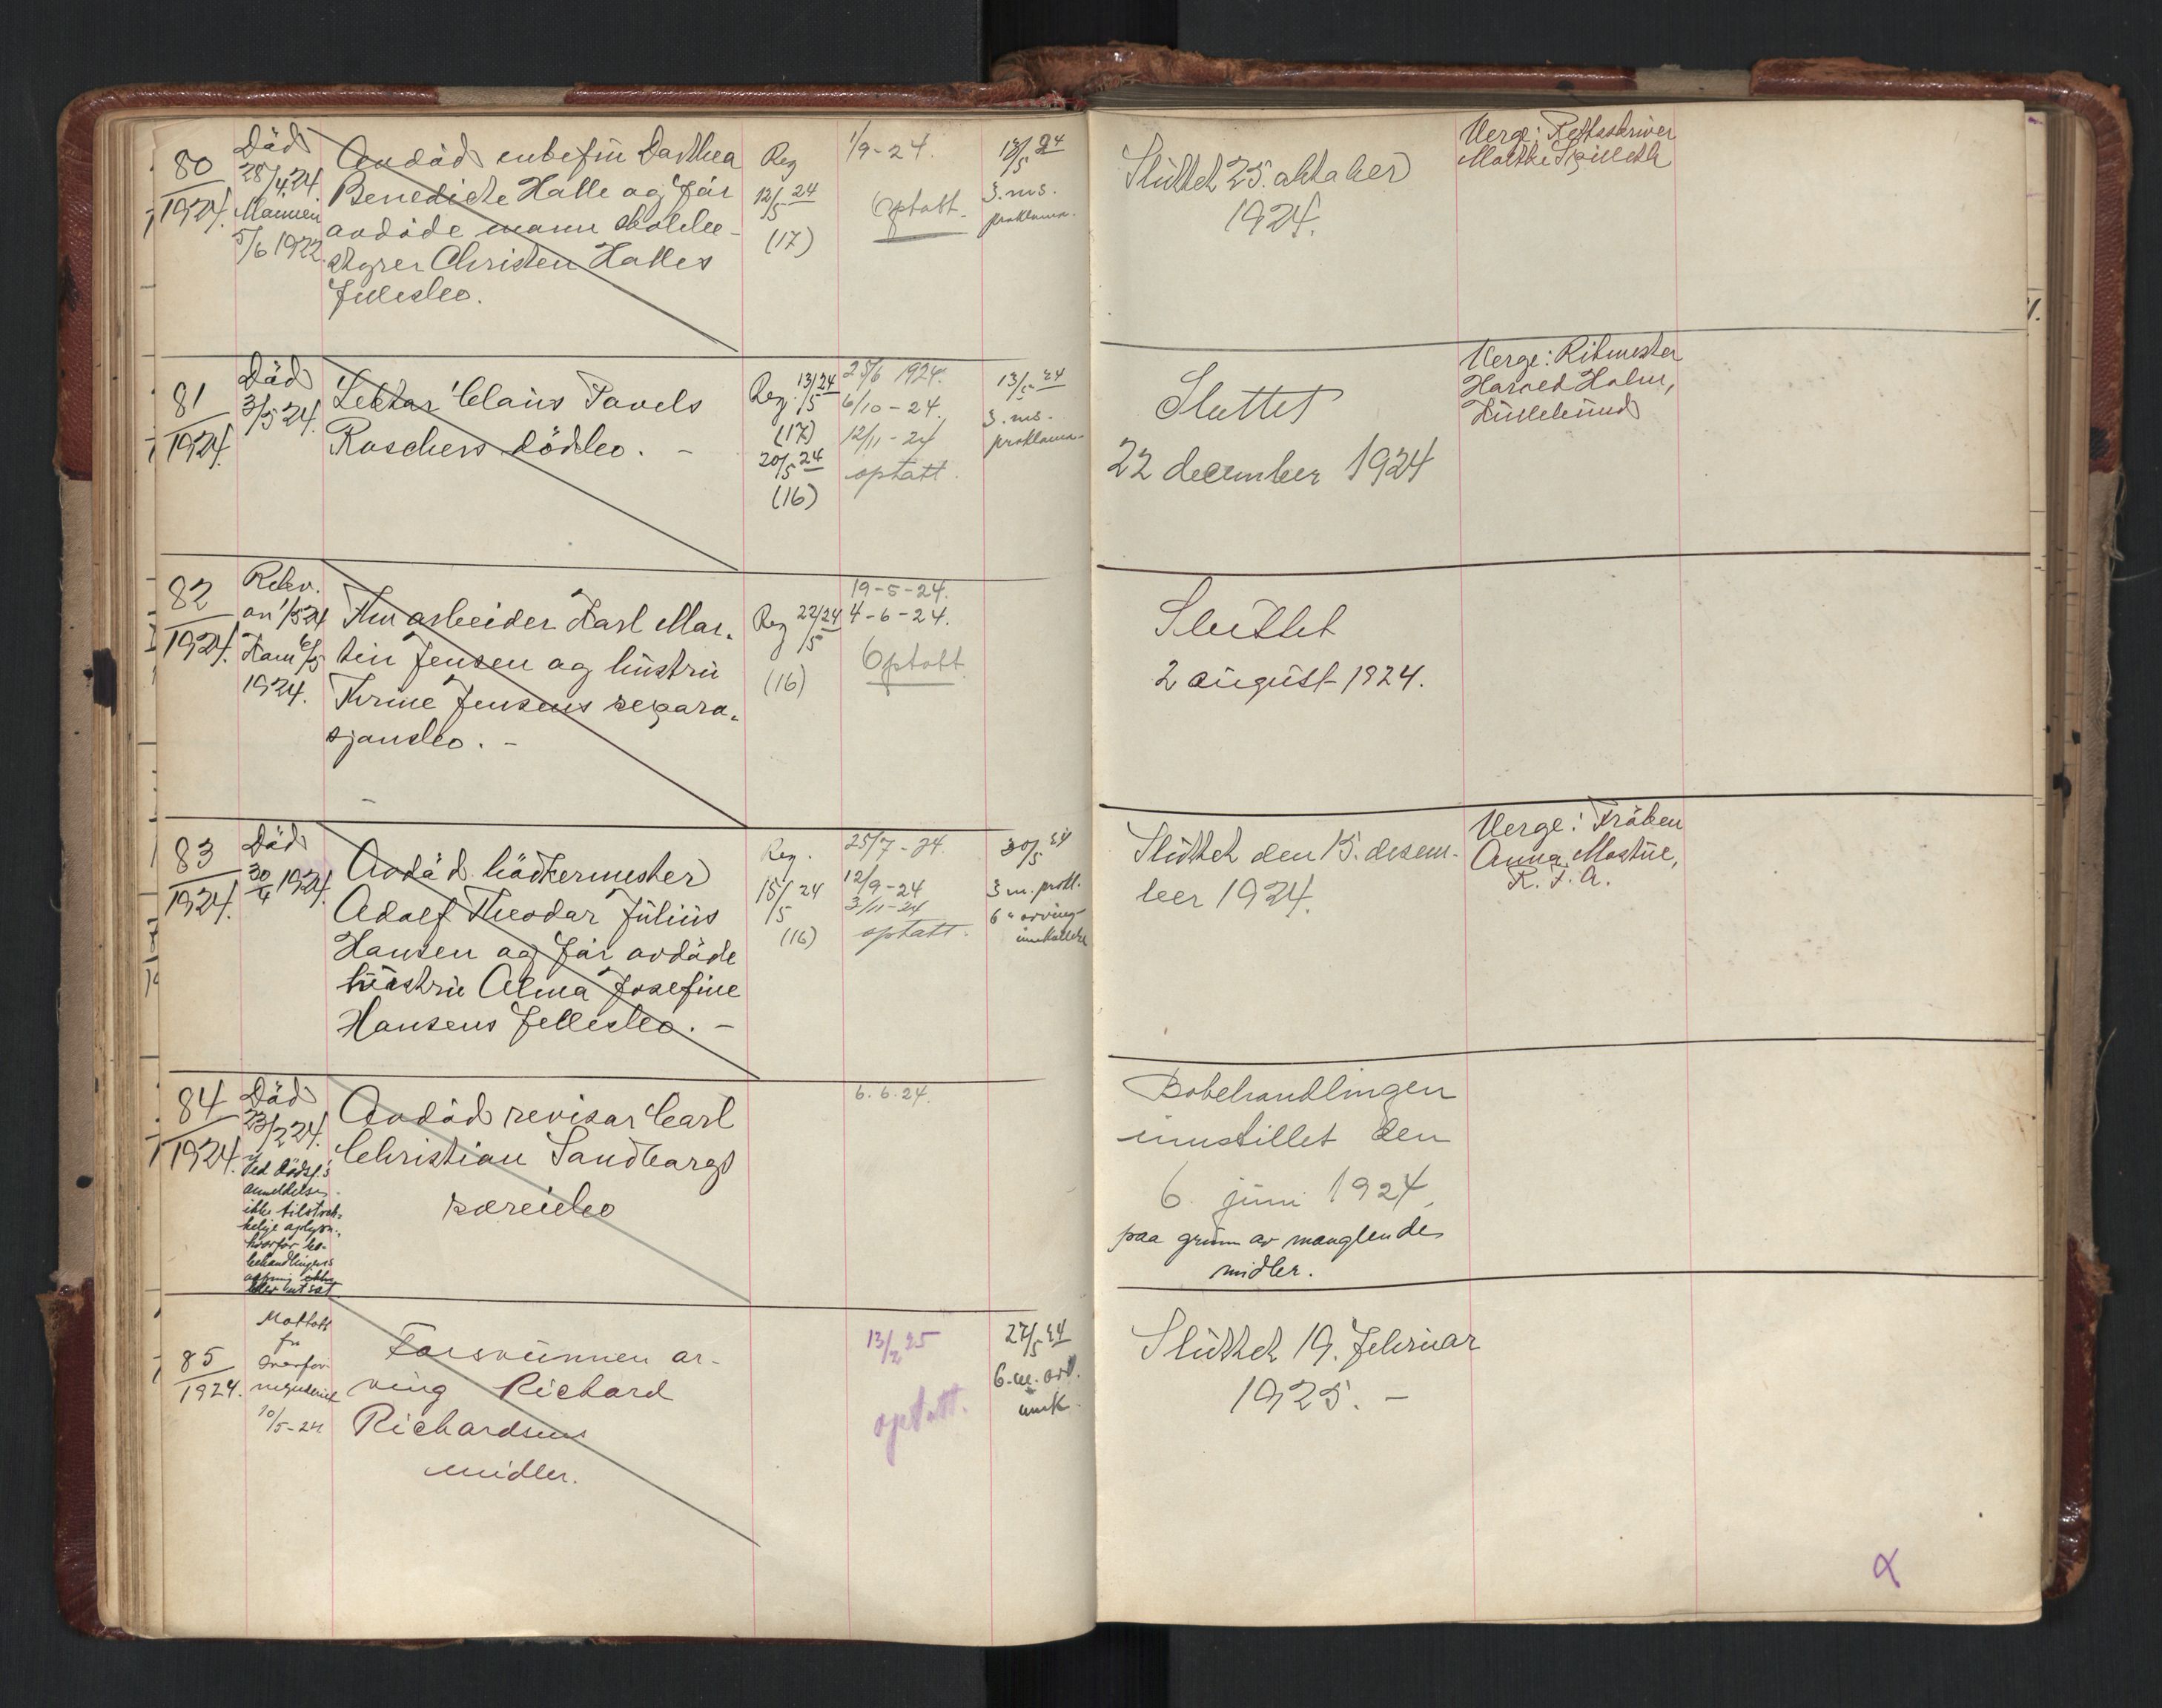 80
1924.
Död
28/4 24.
Mannen
5/6 1922.
Avdöd enkefru Dorthea
Benedicte Halle og før
avdöde mann skolebe-
styrer Christen Halles
fellesbo.
Reg
12/5 24
(17)
1/9-24.
Optatt.
13/5 24
3. ms.
proklama.
Sluttet 25. oktober
1924.
Verge: Rettsskriver
81
1924.
Död
3/5 24.
Lektor Claus Pavels
Roschers dödsbo. -
Reg. 13/5 24
(17)
20/5 24
(16)
25/6 1924.
6/10-24.
12/11-24
optatt.
13/5 24
3. ms.
proklama-
Sluttet
22 december 1924
Verge: Ritmester
Harald Holm,
82
1924.
Rekv.
an 1/5 24
Kom 6/5
1924.
Hr arbeider Karl Mar-
tin Jensen og hustru
Jensens separa-
sjonsbo. -
Reg 22/5 24
(16)
19-5-24.
4-6-24.
Optatt.
Sluttet
2 august 1924.
83
1924.
Död
30/4 1924.
Avdöd bödkermester
Adolf Theodor Julius
Hansen og før avdöde
hustru Alma Josefine
Hansens fellesbo. -
Reg.
15/5 24
(16)
25/7-24.
12/9-24
3/11-24
optatt.
20/5 24
3 m. prokl.
6 " arving-
innkallelse
Sluttet den 15. desem-
ber 1924.
Verge: Fröken
Anna
84
1924.
Död
23/2 24.
Ved dödsf.s
anmeldelse
ikke tilstrek-
kelige oplysn.,
hvorfor bo-
behandlingens
blev utsat
Avdöd revisor Carl
Christian Sandbergs
særeibo
6.6.24.
Bobehandlingen
innstillet den
6. juni 1924,
paa grunn av manglende
midler.
85
1924.
Mottatt
fra
overfor-
mynderiet
10/5-24
Forsvunnen ar-
ving Richard
Richardsens
midler.
13/2 25
optatt.
27/5 24
6. m. arv.
innk.
Sluttet 19. februar
1925. -